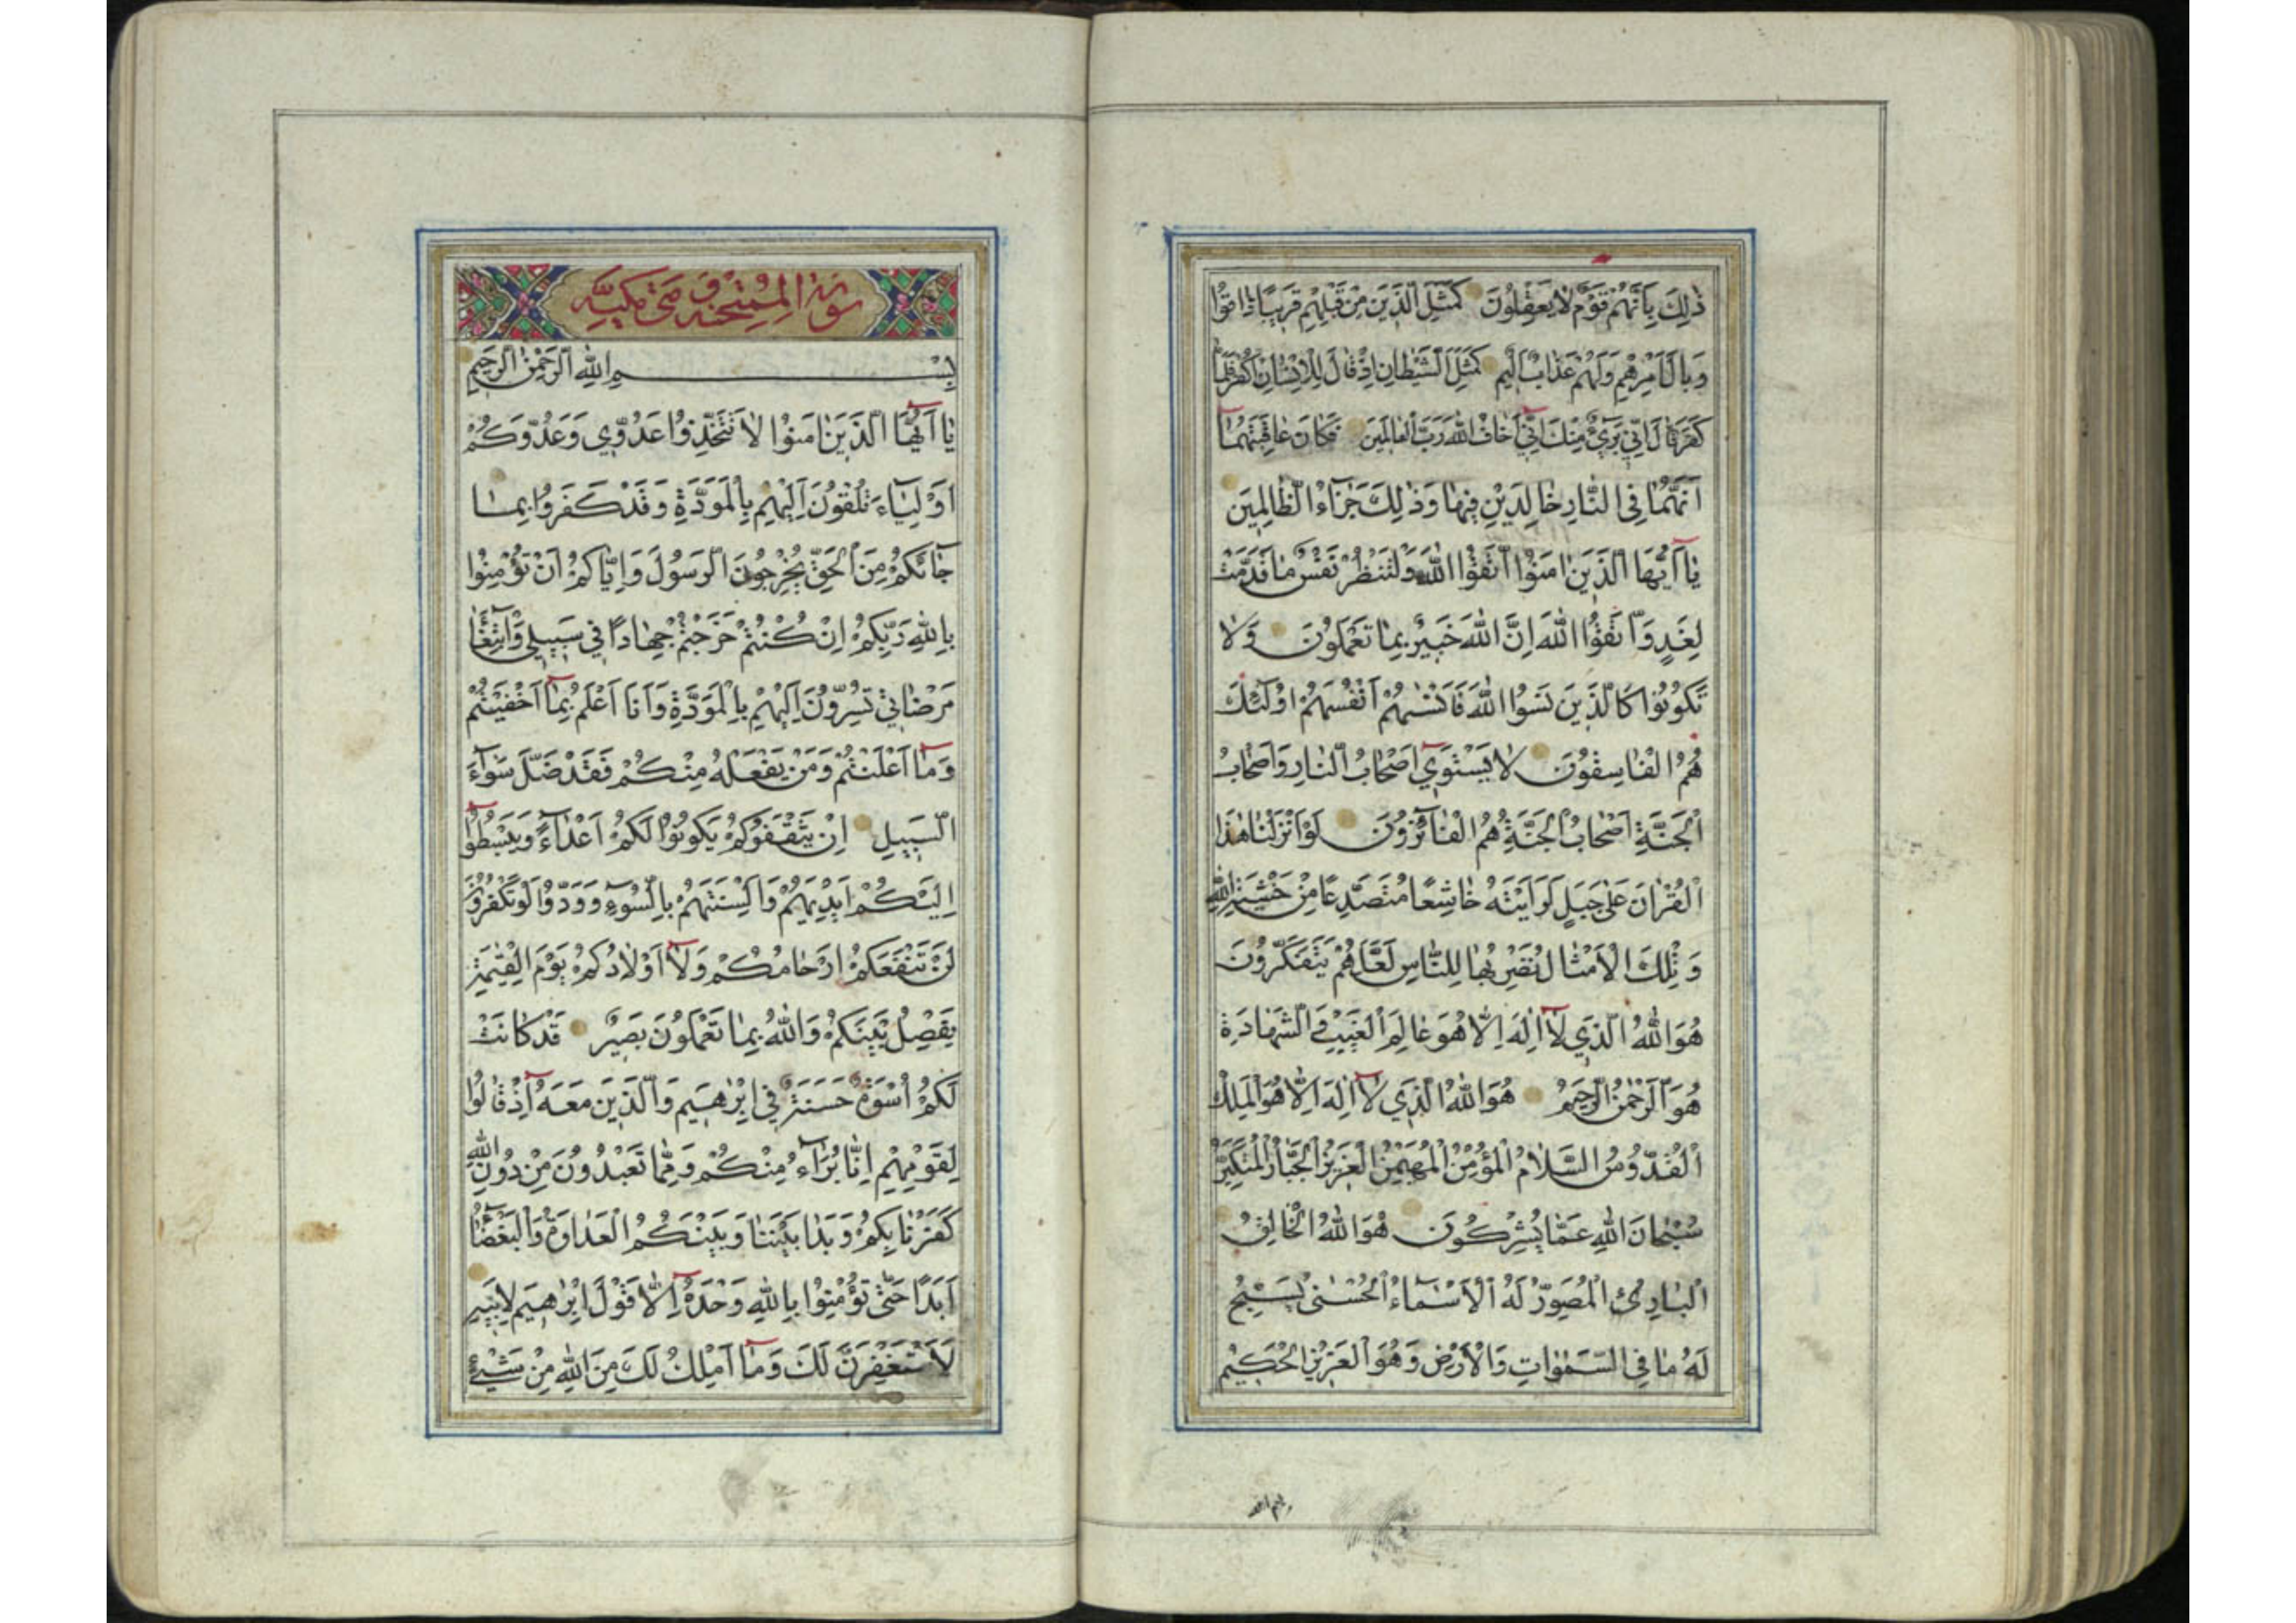 ذٰلِكَ بِاَنَّهُمْ قَوْمٌ لَا يَعْقِلُونَ كَمَثَلِ الَّذِينَ مِنْ قَبْلِهِمْ قَرِيبًا ذَاقُوا
وَبَالَ اَمْرِهِمْ وَلَهُمْ عَذَابٌ اَلِيمٌ كَمَثَلِ الشَّيْطَانِ اِذْ قَالَ لِلْاِنْسَانِ اكْفُرْ فَلَمَّا
كَفَرَ قَالَ اِنِّي بَرِيءٌ مِنْكَ اِنِّي اَخَافُ اللّٰهَ رَبَّ الْعَالَمِينَ فَكَانَ عَاقِبَتَهُمَا
اَنَّهُمَا فِي النَّارِ خَالِدَيْنِ فِيهَا وَذٰلِكَ جَزَآءُ الظَّالِمِينَ
يَآ اَيُّهَا الَّذِينَ اٰمَنُوا اتَّقُوا اللّٰهَ وَلْتَنْظُرْ نَفْسٌ مَا قَدَّمَتْ
لِغَدٍ وَاتَّقُوا اللّٰهَ اِنَّ اللّٰهَ خَبِيرٌ بِمَا تَعْمَلُونَ وَلَا
تَكُونُوا كَالَّذِينَ نَسُوا اللّٰهَ فَاَنْسٰيهُمْ اَنْفُسَهُمْ اُولٰٓئِكَ
هُمُ الْفَاسِقُونَ لَا يَسْتَوِي اَصْحَابُ النَّارِ وَاَصْحَابُ
الْجَنَّةِ اَصْحَابُ الْجَنَّةِ هُمُ الْفَآئِزُونَ لَوْ اَنْزَلْنَا هٰذَا
الْقُرْاٰنَ عَلٰى جَبَلٍ لَرَاَيْتَهُ خَاشِعًا مُتَصَدِّعًا مِنْ خَشْيَةِ اللّٰهِ
وَتِلْكَ الْاَمْثَالُ نَضْرِبُهَا لِلنَّاسِ لَعَلَّهُمْ يَتَفَكَّرُونَ
هُوَ اللّٰهُ الَّذِي لَآ اِلٰهَ اِلَّا هُوَ عَالِمُ الْغَيْبِ وَالشَّهَادَةِ
هُوَ الرَّحْمٰنُ الرَّحِيمُ هُوَ اللّٰهُ الَّذِي لَآ اِلٰهَ اِلَّا هُوَ الْمَلِكُ
الْقُدُّوسُ السَّلَامُ الْمُؤْمِنُ الْمُهَيْمِنُ الْعَزِيزُ الْجَبَّارُ الْمُتَكَبِّرُ
سُبْحَانَ اللّٰهِ عَمَّا يُشْرِكُونَ هُوَ اللّٰهُ الْخَالِقُ
الْبَارِئُ الْمُصَوِّرُ لَهُ الْاَسْمَآءُ الْحُسْنٰى يُسَبِّحُ
لَهُ مَا فِي السَّمٰوَاتِ وَالْاَرْضِ وَهُوَ الْعَزِيزُ الْحَكِيمُ
بسم الله
سورة الممتحنة مكية
بِسْمِ اللّٰهِ الرَّحْمٰنِ الرَّحِيمِ
يَآ اَيُّهَا الَّذِينَ اٰمَنُوا لَا تَتَّخِذُوا عَدُوِّي وَعَدُوَّكُمْ
اَوْلِيَآءَ تُلْقُونَ اِلَيْهِمْ بِالْمَوَدَّةِ وَقَدْ كَفَرُوا بِمَا
جَآئَكُمْ مِنَ الْحَقِّ يُخْرِجُونَ الرَّسُولَ وَاِيَّاكُمْ اَنْ تُؤْمِنُوا
بِاللّٰهِ رَبِّكُمْ اِنْ كُنْتُمْ خَرَجْتُمْ جِهَادًا فِي سَبِيلِي وَابْتِغَآءَ
مَرْضَاتِي تُسِرُّونَ اِلَيْهِمْ بِالْمَوَدَّةِ وَاَنَا اَعْلَمُ بِمَآ اَخْفَيْتُمْ
وَمَآ اَعْلَنْتُمْ وَمَنْ يَفْعَلْهُ مِنْكُمْ فَقَدْ ضَلَّ سَوَآءَ
السَّبِيلِ اِنْ يَثْقَفُوكُمْ يَكُونُوا لَكُمْ اَعْدَآءً وَيَبْسُطُوا
اِلَيْكُمْ اَيْدِيَهُمْ وَاَلْسِنَتَهُمْ بِالسُّوءِ وَوَدُّوا لَوْ تَكْفُرُونَ
لَنْ تَنْفَعَكُمْ اَرْحَامُكُمْ وَلَآ اَوْلَادُكُمْ يَوْمَ الْقِيٰمَةِ
يَفْصِلُ بَيْنَكُمْ وَاللّٰهُ بِمَا تَعْمَلُونَ بَصِيرٌ قَدْ كَانَتْ
لَكُمْ اُسْوَةٌ حَسَنَةٌ فِي اِبْرٰهِيمَ وَالَّذِينَ مَعَهُ اِذْ قَالُوا
لِقَوْمِهِمْ اِنَّا بُرَآءُ مِنْكُمْ وَمِمَّا تَعْبُدُونَ مِنْ دُونِ اللّٰهِ
كَفَرْنَا بِكُمْ وَبَدَا بَيْنَنَا وَبَيْنَكُمُ الْعَدَاوَةُ وَالْبَغْضَآءُ
اَبَدًا حَتّٰى تُؤْمِنُوا بِاللّٰهِ وَحْدَهُ اِلَّا قَوْلَ اِبْرٰهِيمَ لِاَبِيهِ
لَاَسْتَغْفِرَنَّ لَكَ وَمَآ اَمْلِكُ لَكَ مِنَ اللّٰهِ مِنْ شَيْءٍ